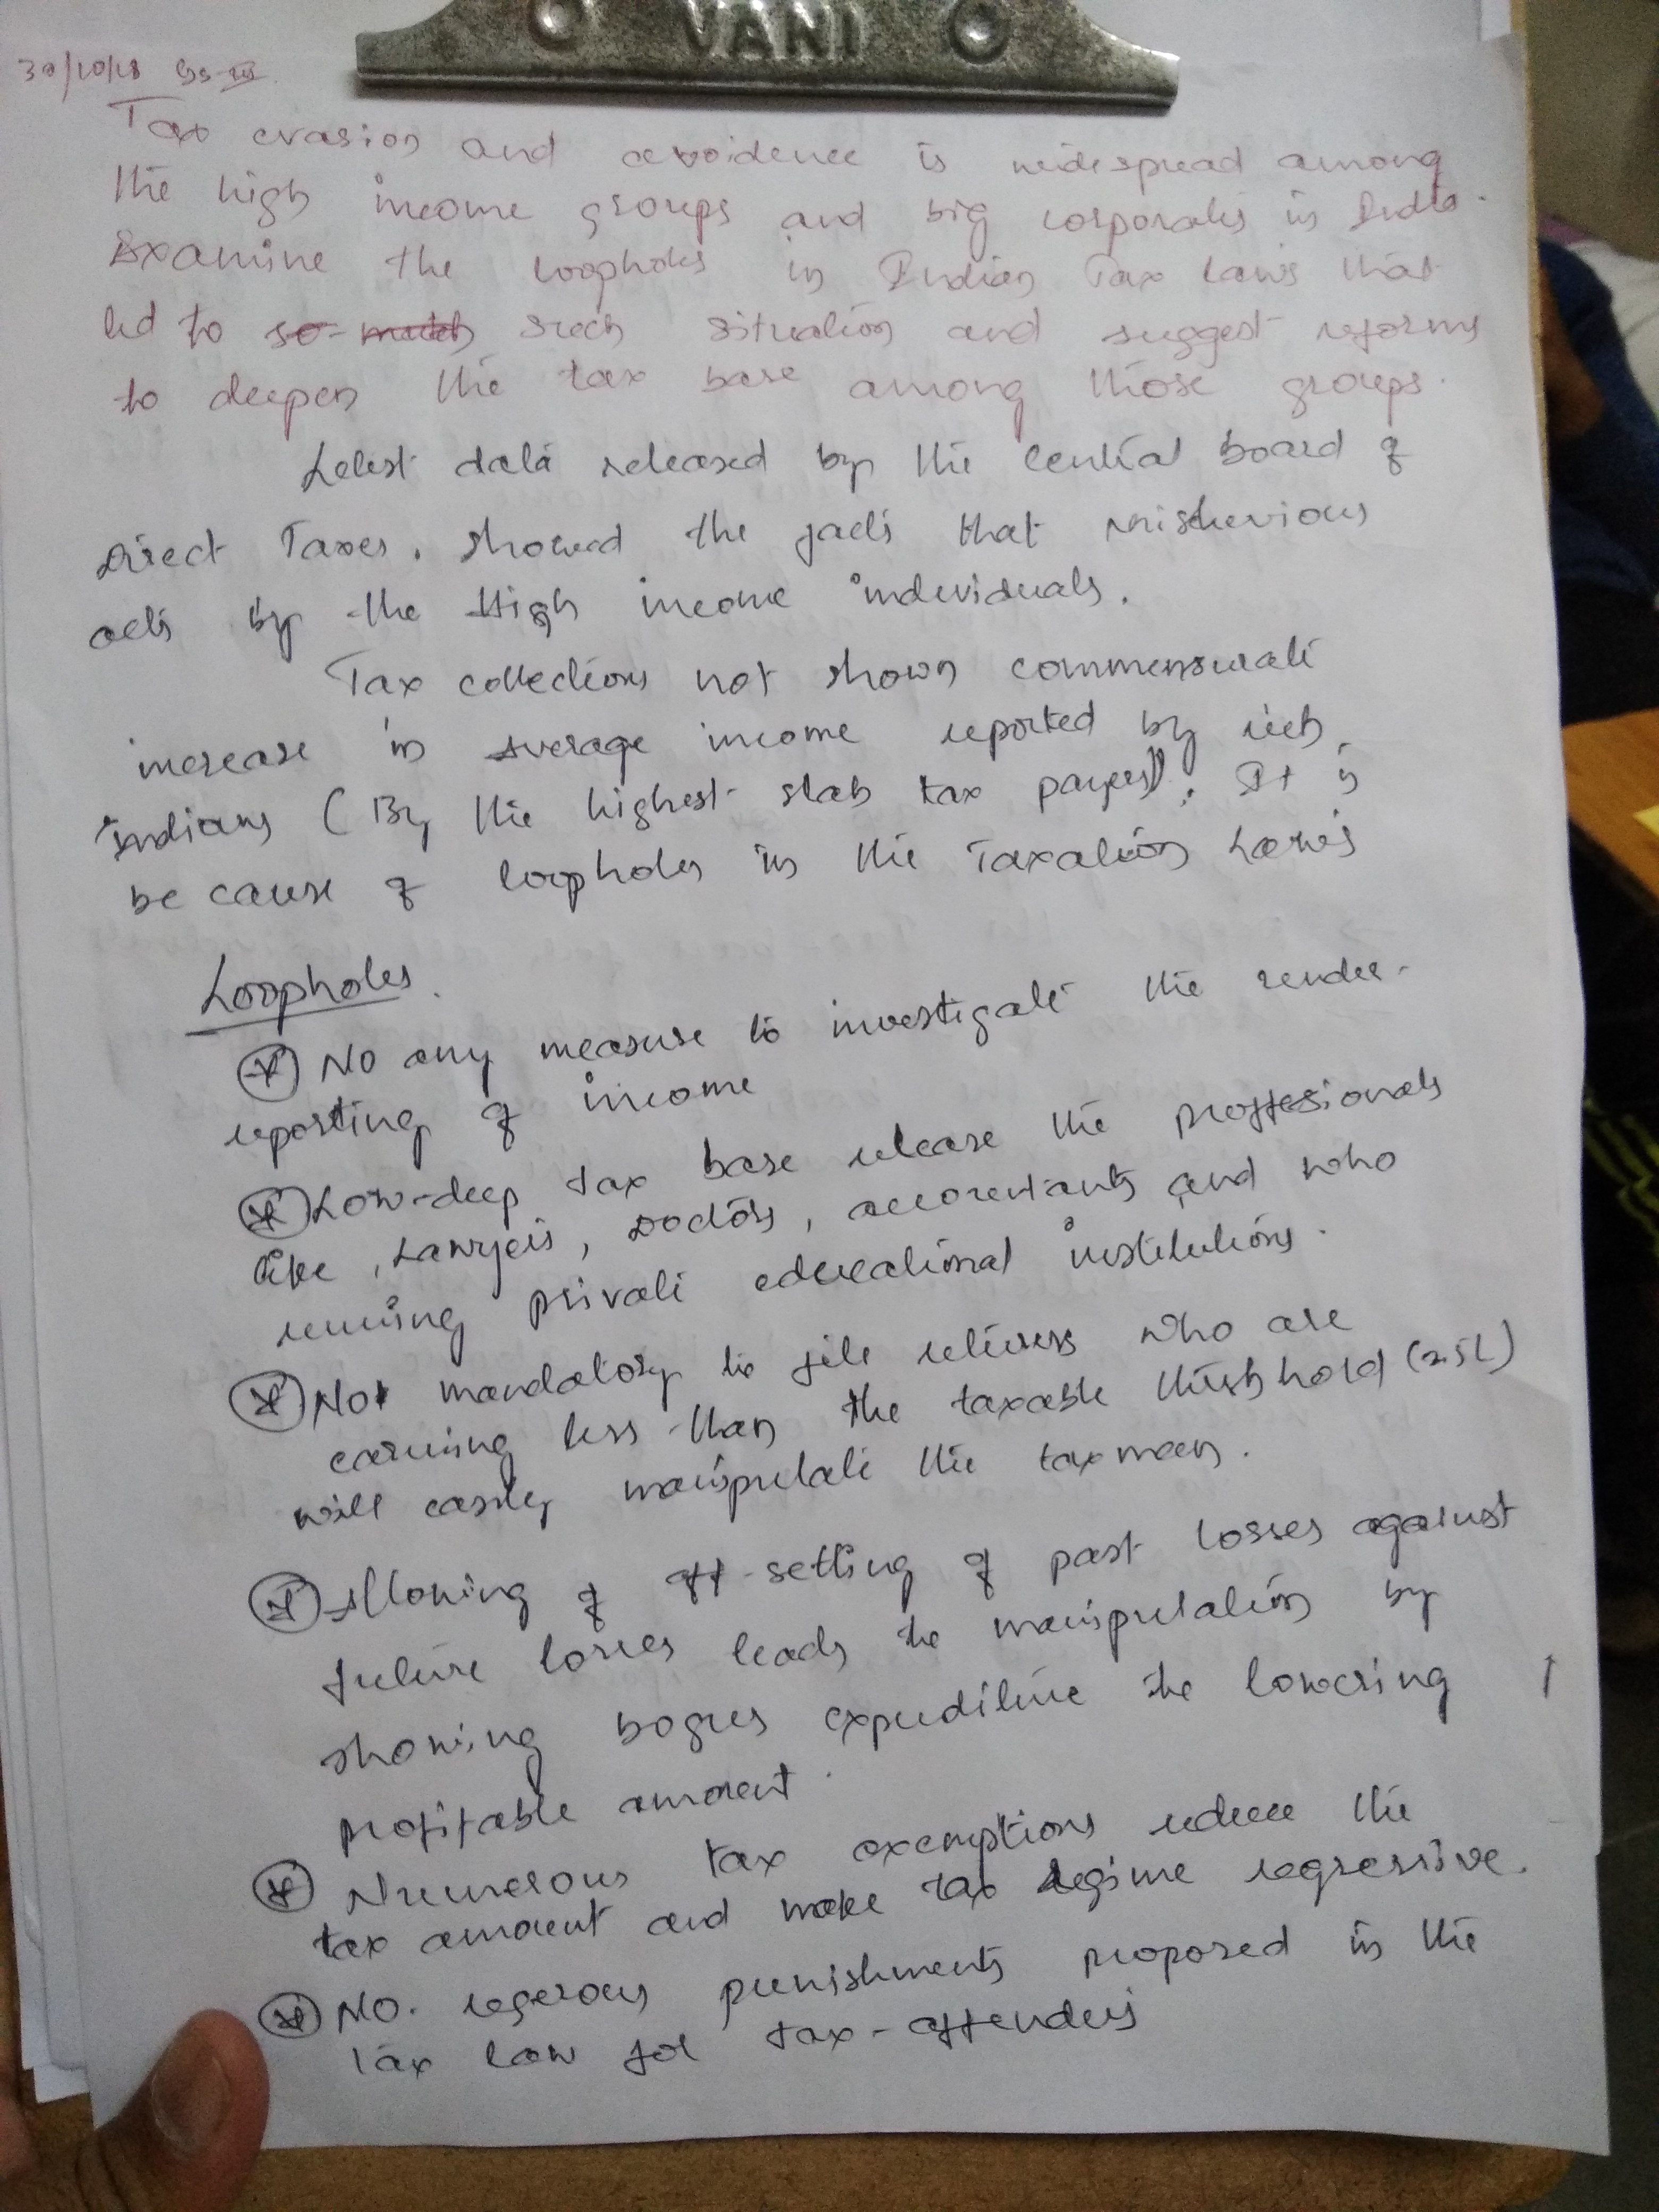 VANI
30/10/18 GS-III
Tax evasion and avoidence is widespread among
the high income groups and big corporates in India.
Examine the loopholes in Indian Tax Laws that
led to so much such situation and suggest reforms
to deepen the tax base among those groups.
Latest data released by the central board of
Direct Taxes, showed the facts that mischevious
acts by the High income individuals.
Tax collections not shown commensurate
increase in average income reported by rich
Indians (By the highest slab tax payers). It is
because of loopholes in the Taxation Laws
Loopholes.
No any measure to investigate the under-
reporting of income
Low-deep tax base release the proffesionals
like, Lawyers, Doctors, accountants and who
running private educational institutions.
Not mandatory to file returns who are
earning less than the taxable threshhold (2.5L)
will easily manipulate the taxman.
Allowing of off-setting of past losses against
future losses leads to manipulation by
showing bogus expenditure the lowering
profitable amount.
Numerous tax exemptions reduce the
tax amount and make tax regime regressive.
NO. regerous punishments proposed in the
Tax law for tax-offenders